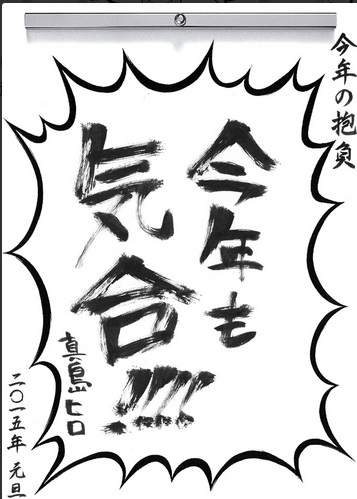 今年の抱負
今年も
気合!!!!
真島ヒロ
二〇一五年 元旦